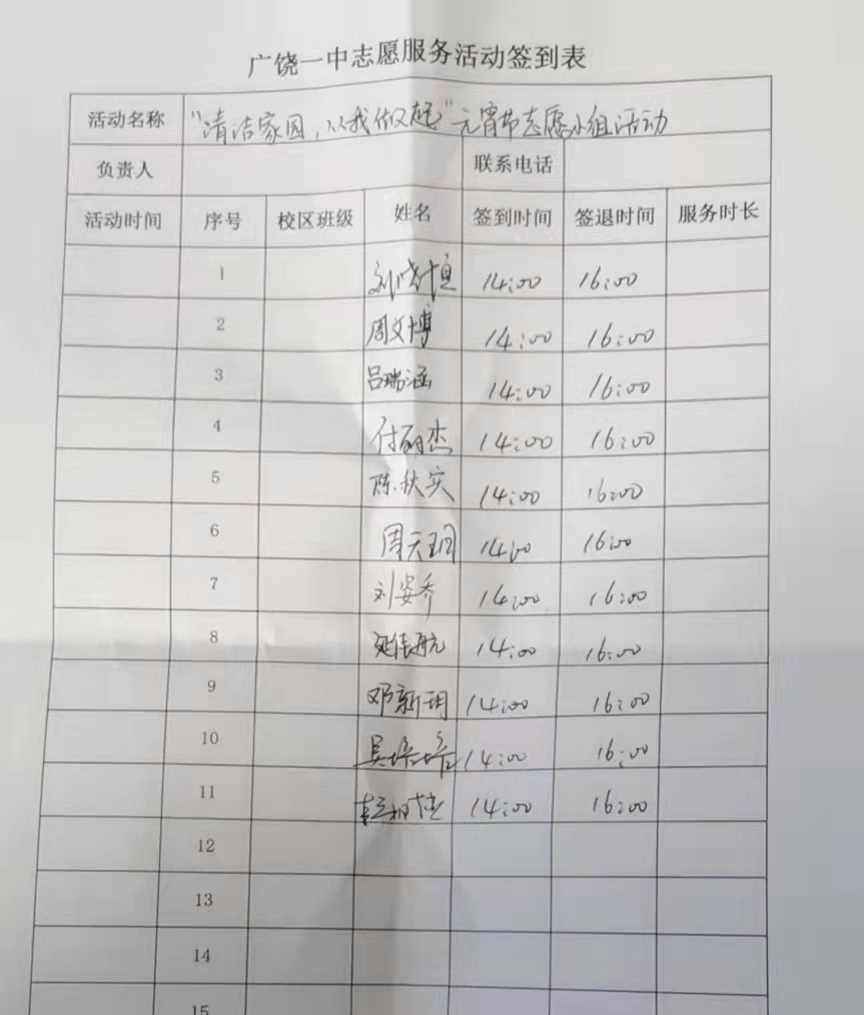 广饶一中志愿服务活动签到表
活动名称 "清洁家园，从我做起"元宵节志愿小组活动
负责人 联系电话
活动时间 序号 校区班级 姓名 签到时间 签退时间 服务时长
1 14:00 16:00
2 周文博 14:00 16:00
3 吕瑞涵 14:00 16:00
4 14:00 16:00
5 陈秋实 14:00 16:00
6 周天玥 14:00 16:00
7 刘姿乔 14:00 16:00
8 14:00 16:00
9 邓新玥 14:00 16:00
10 吴培培 14:00 16:00
11 14:00 16:00
12
13
14
15